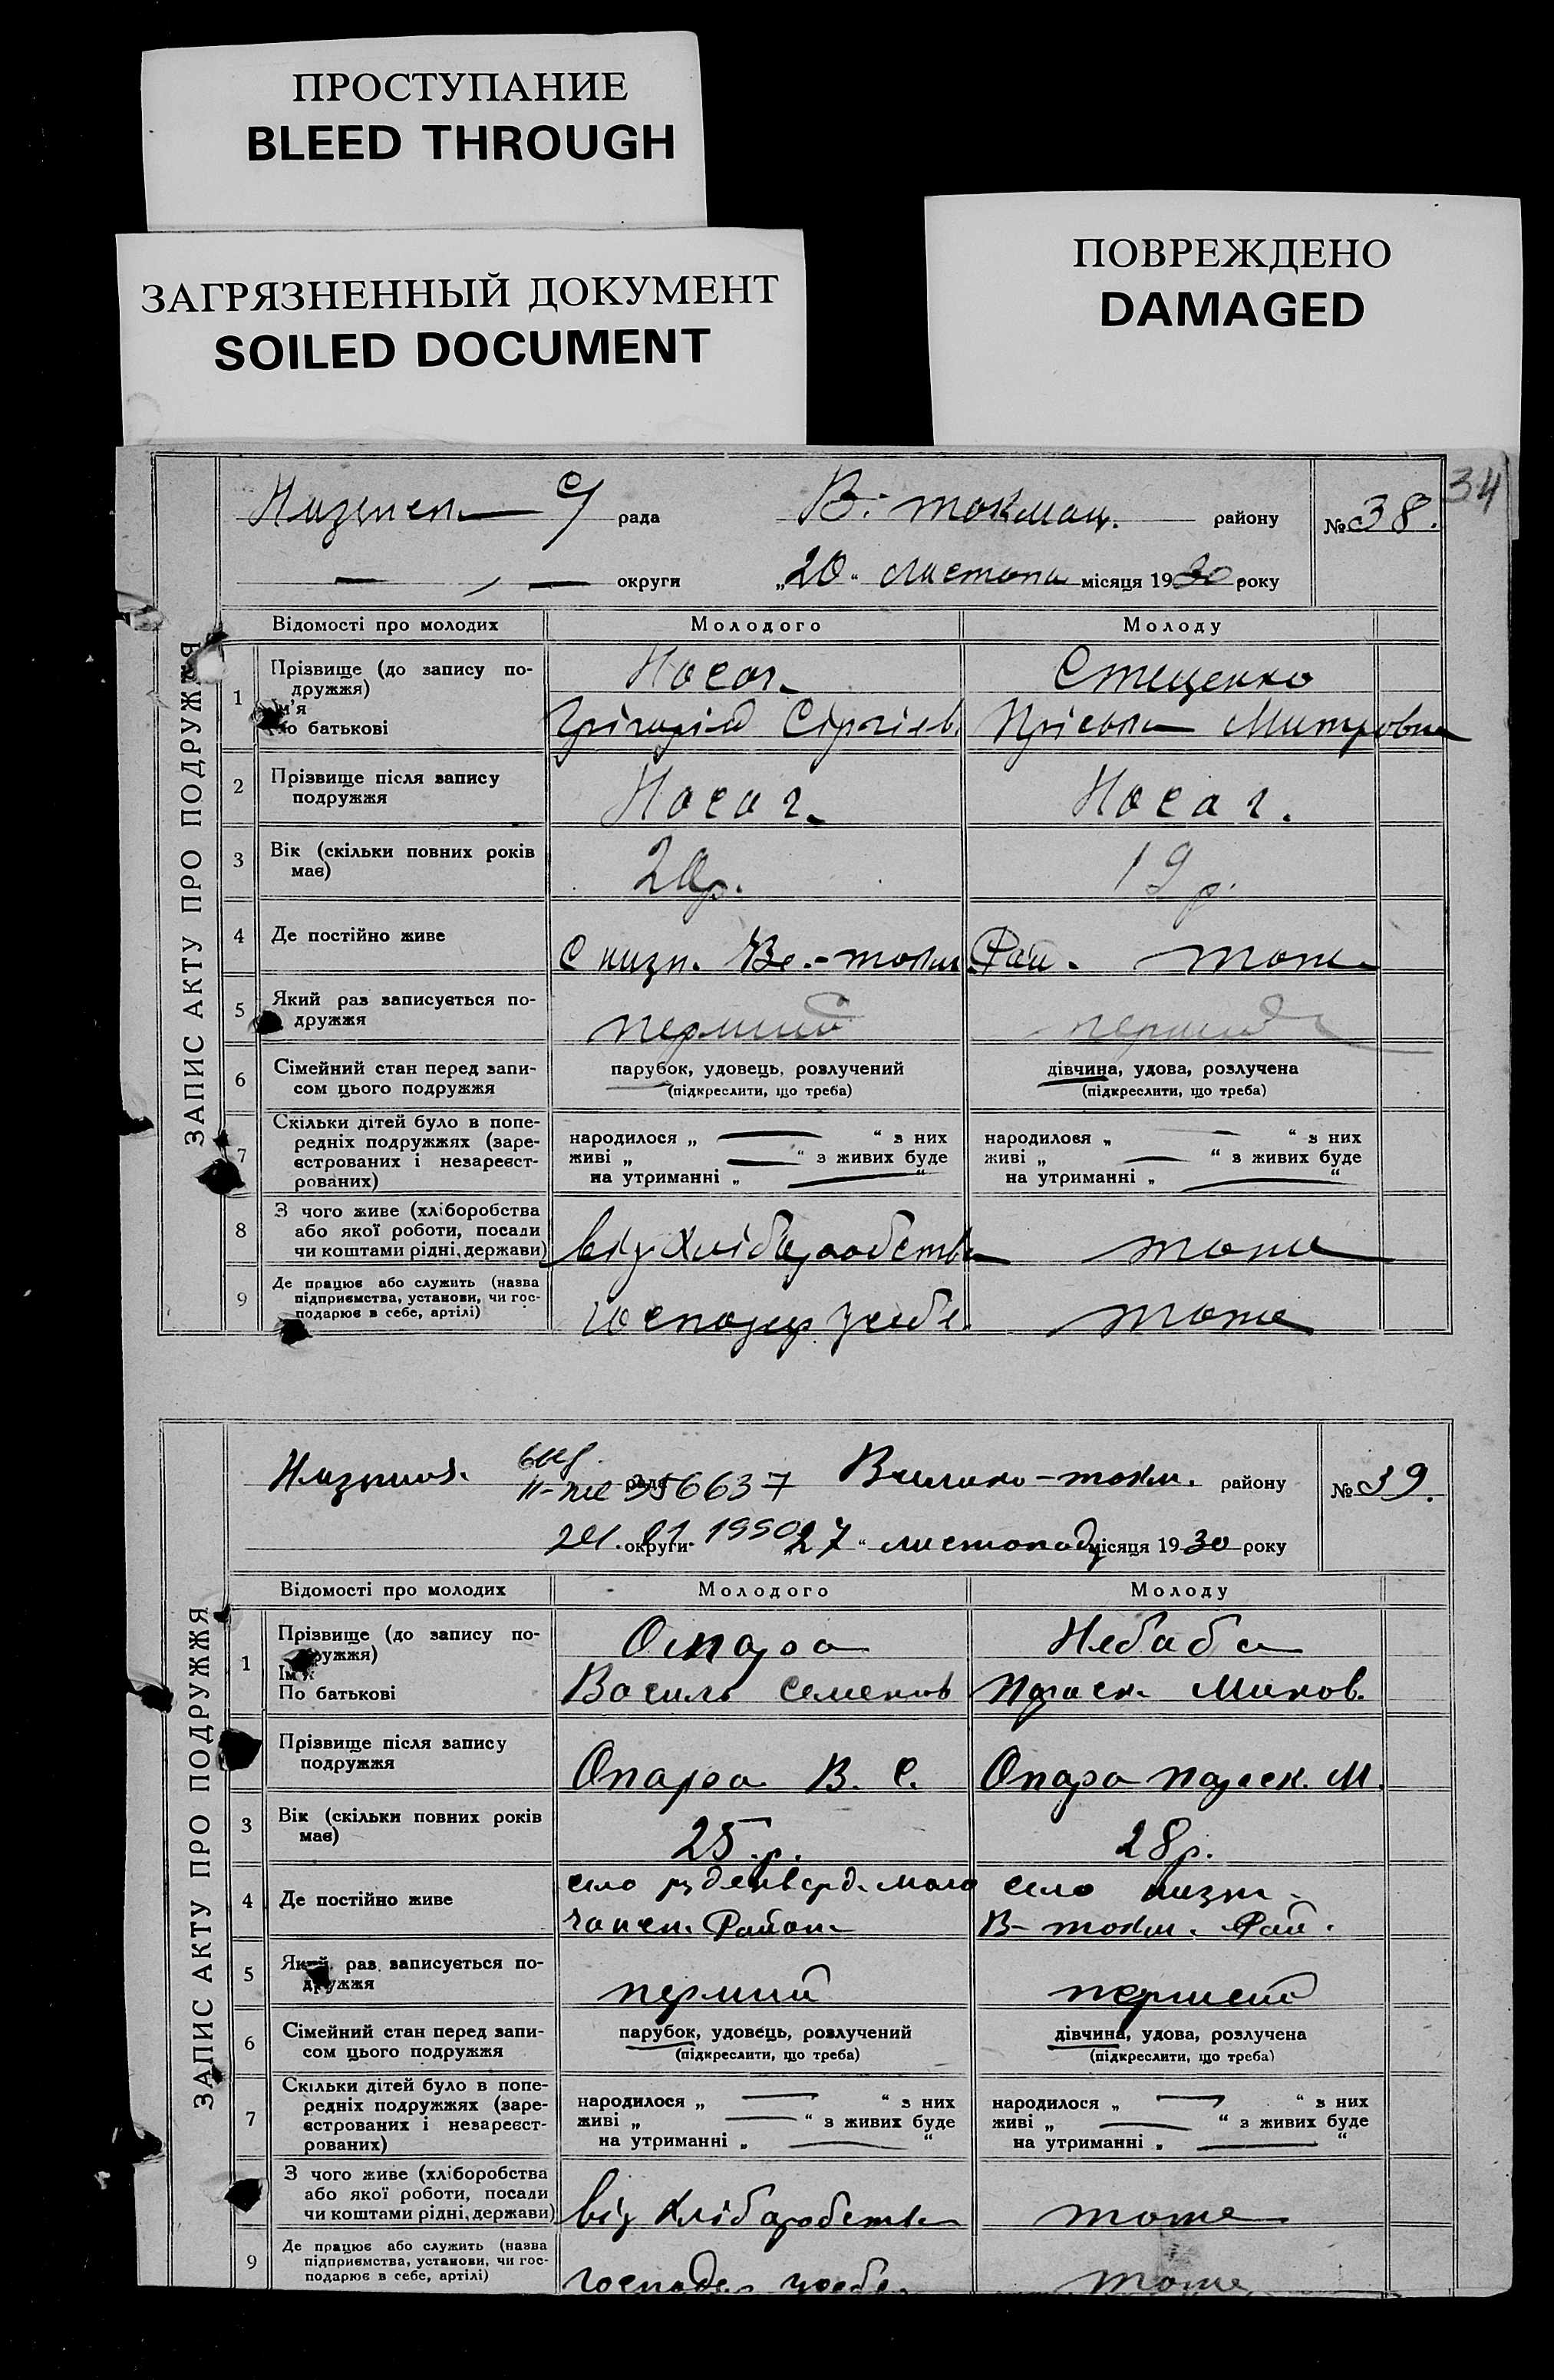 ПРОСТУПАНИЕ
BLEED THROUGH
ЗАГРЯЗНЕННЫЙ ДОКУМЕНТ
SOILED DOCUMENT
ПОВРЕЖДЕНО
DAMAGED
34
ЗАПИС АКТУ ПРО ПОДРУЖЖЯ
с/ рада В. токмац. району № 38.
округи „20“ листопа місяця 1930 року
Відомості про молодих Молодого Молоду
1 Прізвище (до запису по-
дружжя) Носач Стеценко
м'я
По батькові Грігорій Сіргієв. Пріська Митровна
2 Прізвище після запису
подружжя Носач. Носач.
3 Вік (скільки повних років
має) 20р. 19 р.
4 Де постійно живе С низн. Ве.-токм. Рай. тоже
5 Який раз записується по-
дружжя перший перший
6 Сімейний стан перед запи-
сом цього подружжя
парубок, удовець, розлучений
(підкреслити, що треба)
дівчина, удова, розлучена
(підкреслити, що треба)
7 Скільки дітей було в попе-
редніх подружжях (заре-
єстрованих і незареєст-
рованих)
народилося „ — “ з них
живі „ — “ з живих буде
на утриманні „ — “
народилося „ — “ з них
живі „ — “ з живих буде
на утриманні „ — “
8 З чого живе (хліборобства
або якої роботи, посади
чи коштами рідні, держави) від Хліборобства тоже
9 Де працює або служить (назва
підприємства, установи, чи гос-
подарює в себе, артілі) господар. усебе. тоже
ЗАПИС АКТУ ПРО ПОДРУЖЖЯ
рада 356637 Велико-токм. району № 39.
округи 1990 „27“ листопада місяця 1930 року
Відомості про молодих Молодого Молоду
1 Прізвище (до запису по-
дружжя) Опара Небаба
Ім'я
По батькові Василь Семенов Параск. Минов.
Прізвище після запису
подружжя Опара В. С. Опара Параск. М.
3 Вік (скільки повних років
має) 25.р. 28р.
4 Де постійно живе село Мало село низн.
чанск. Район В-токм. Рай.
5 Який раз записується по-
дружжя перший перший
6 Сімейний стан перед запи-
сом цього подружжя
парубок, удовець, розлучений
(підкреслити, що треба)
дівчина, удова, розлучена
(підкреслити, що треба)
7 Скільки дітей було в попе-
редніх подружжях (заре-
єстрованих і незареєст-
рованих)
народилося „ — “ з них
живі „ — “ з живих буде
на утриманні „ — “
народилося „ — “ з них
живі „ — “ з живих буде
на утриманні „ — “
З чого живе (хліборобства
або якої роботи, посади
чи коштами рідні, держави) від Хліборобства тоже
9 Де працює або служить (назва
підприємства, установи, чи гос-
подарює в себе, артілі) господар усебе тоже